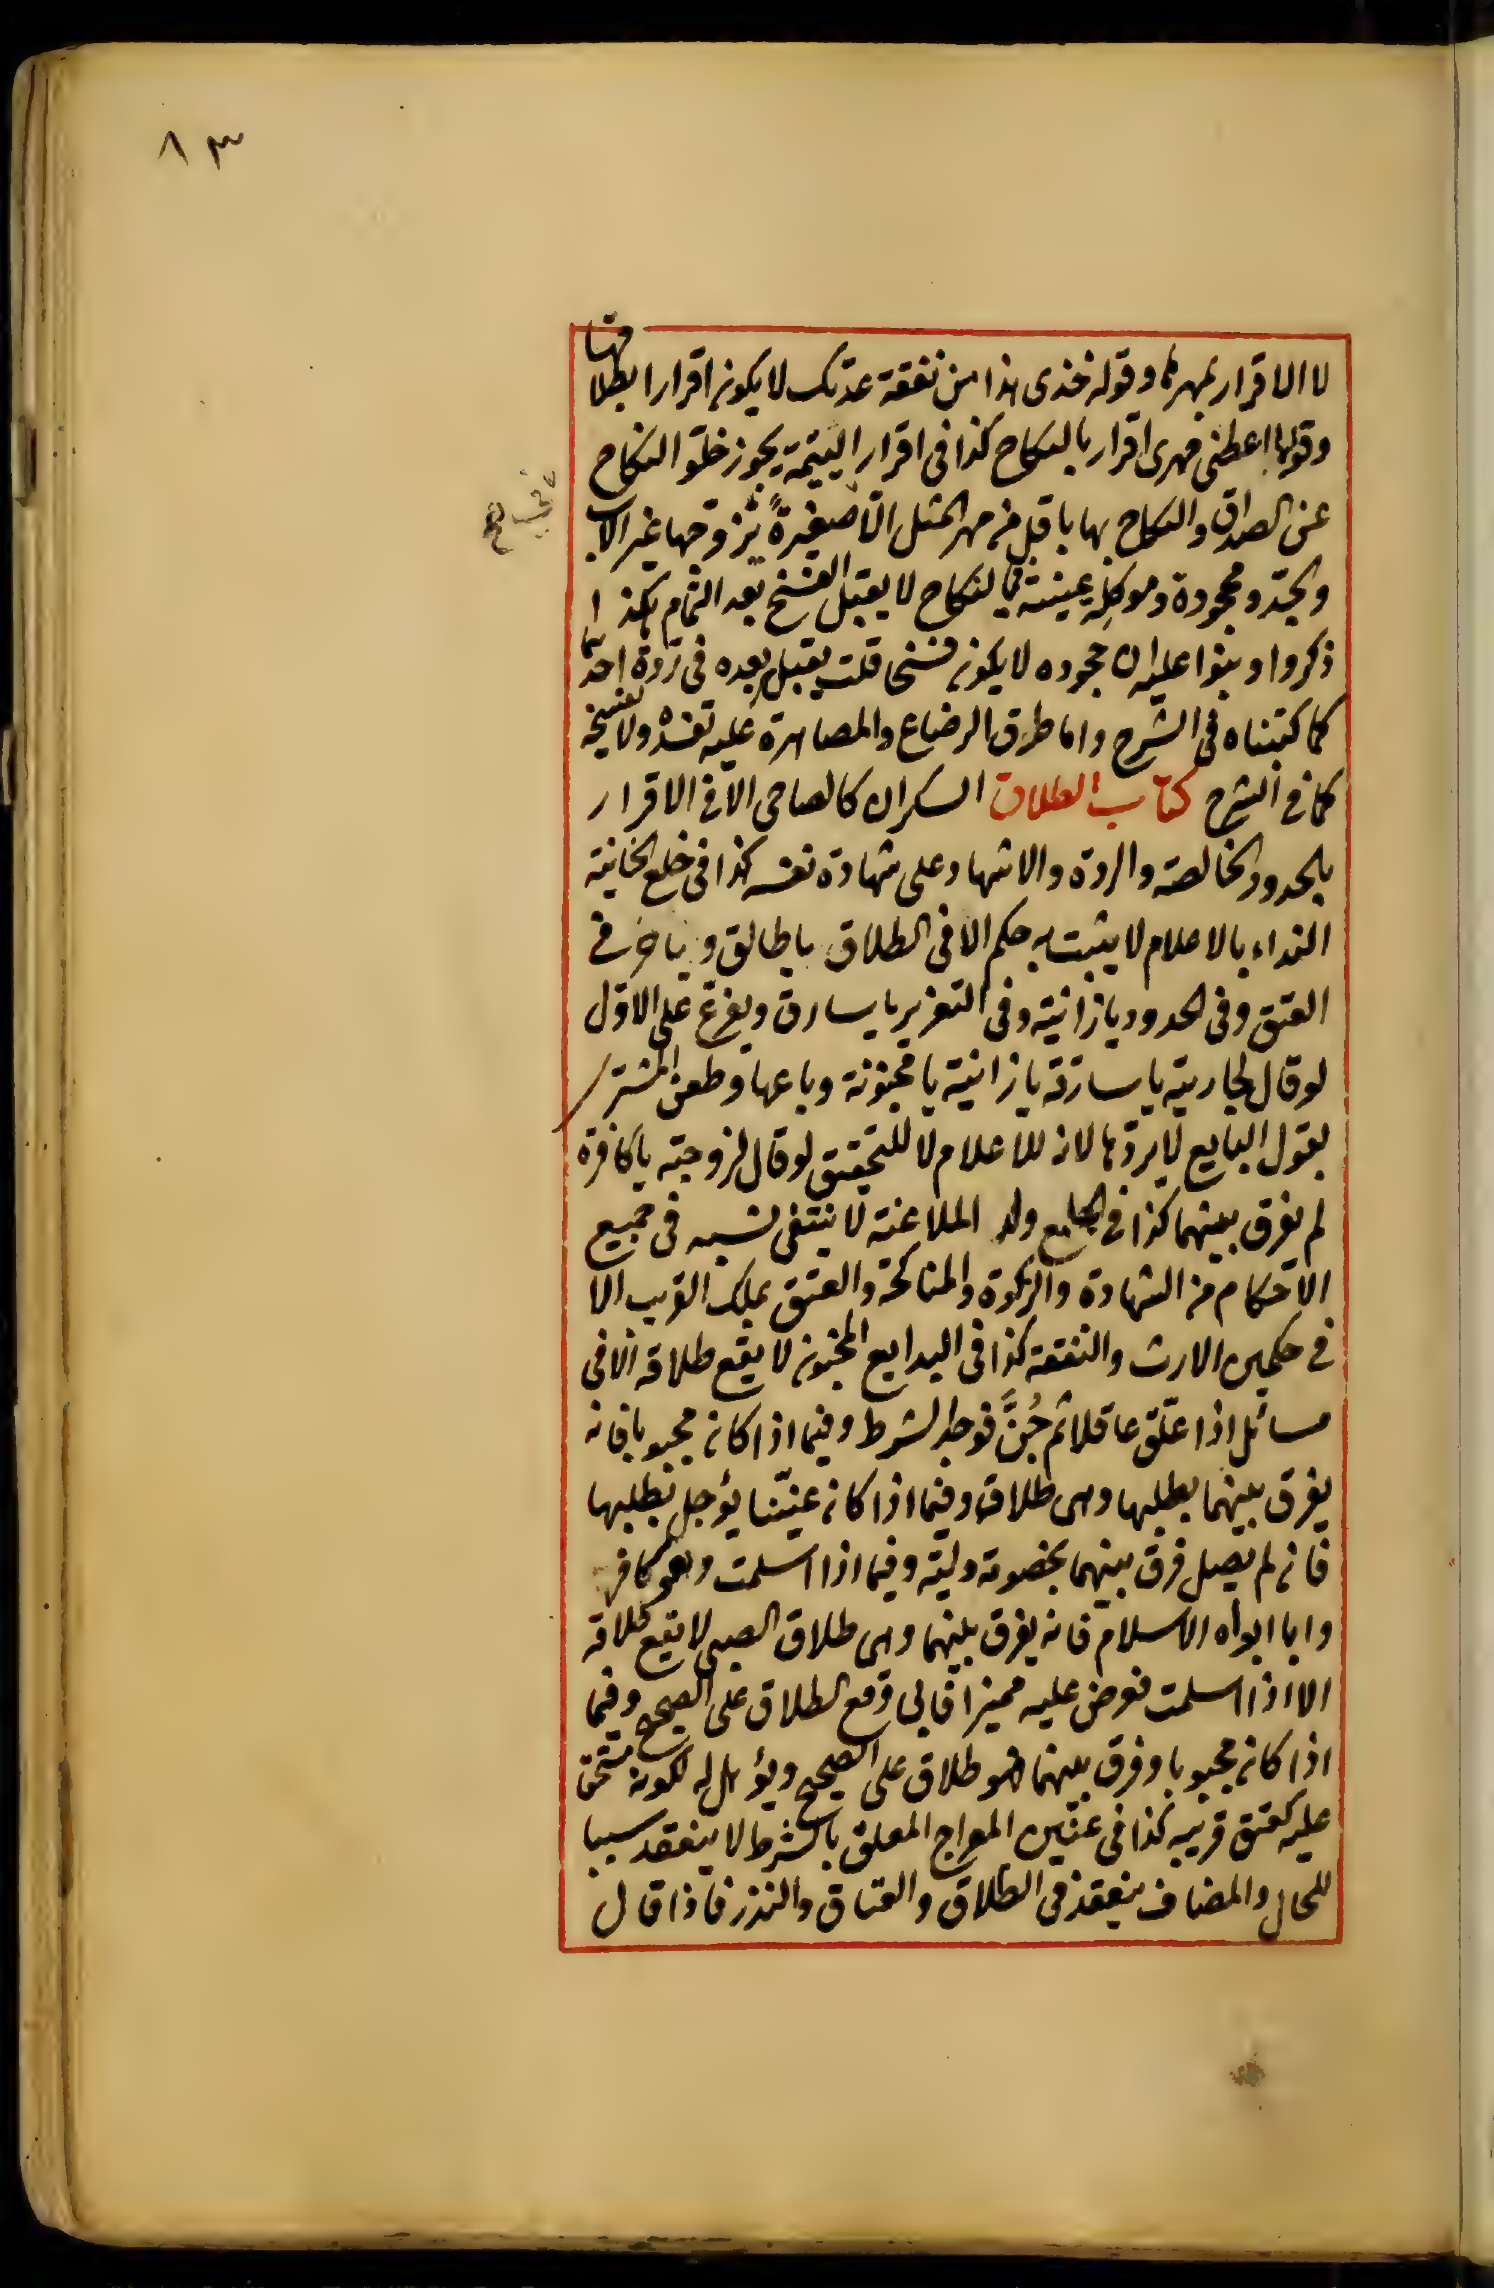 ٨٣
لا الاقرار بمهرها وقوله خذى هذا من نفقة عدتك لا يكون اقرارا بطلاقها
وقولها اعطنى مهرى اقرار بالنكاح كذا فى اقرار اليتيمة يجوز خلو النكاح
عن الصداق والنكاح بها باقل من مهر المثل الا صغيرة يزوجها غير الاب
والجد ومحجورة وموكله عينته فى النكاح لا يقبل الفسخ بعد التمام هكذا
ذكروا وبنوا عليه ان جحوده لا يكون فسخا قلت يقبل بعده فى ردة احدهما
كما كتبناه فى الشرح واما طرق الرضاع والمصاهرة عليه تفسده ولا تفسخه
كما فى الشرح كتاب الطلاق السكران كالصاحى الا فى الاقرار
بالحدود الخالصة والردة والاشهاد على شهادة نفسه كذا فى خلع الخانية
النداء بالاعلام لا يثبت به حكم الا فى الطلاق يا طالق و يا حر فى
العتق وفى الحدود يا زانية وفى التعزير يا سارق ويفرع على الاول
لو قال لجارية يا سارقة يا زانية يا مجنونة وباعها وطعن المشترى
بقول البايع لا يردها لانه للاعلام لا للتحقيق لو قال لزوجته يا كافرة
لم يفرق بينهما كذا فى الجامع ولد الملاعنة لا ينتفى نسبه فى جميع
الاحكام من الشهادة والزكوة والمناكحة والعتق بملك القريب الا
فى حكمين الارث والنفقة كذا فى البدايع المجنون لا يقع طلاقه الا فى
مسائل اذا علق عاقلا ثم جُنَّ فوجد الشرط وفيما اذا كان مجبوبا فانه
يفرق بينهما بطلبها وهى طلاق وفيما اذا كان عنينا يؤجل بطلبها
فان لم يصل فرق بينهما بخصومة وليه وفيما اذا اسلمت وهو كافر
وابا ابواه الاسلام فانه يفرق بينهما وهى طلاق الصبى لا يقع طلاقه
الا اذا اسلمت فعرض عليه مميزا فابى وقع الطلاق على الصحيح وفيما
اذا كان مجبوبا وفرق بينهما فهو طلاق على الصحيح ويؤهل له لكونه مستحق
عليه كعتق قريبه كذا فى عنين المعراج المعلق بالشرط لا ينعقد سببا
للحال والمضاف ينعقد فى الطلاق والعتاق والنذر فاذا قال